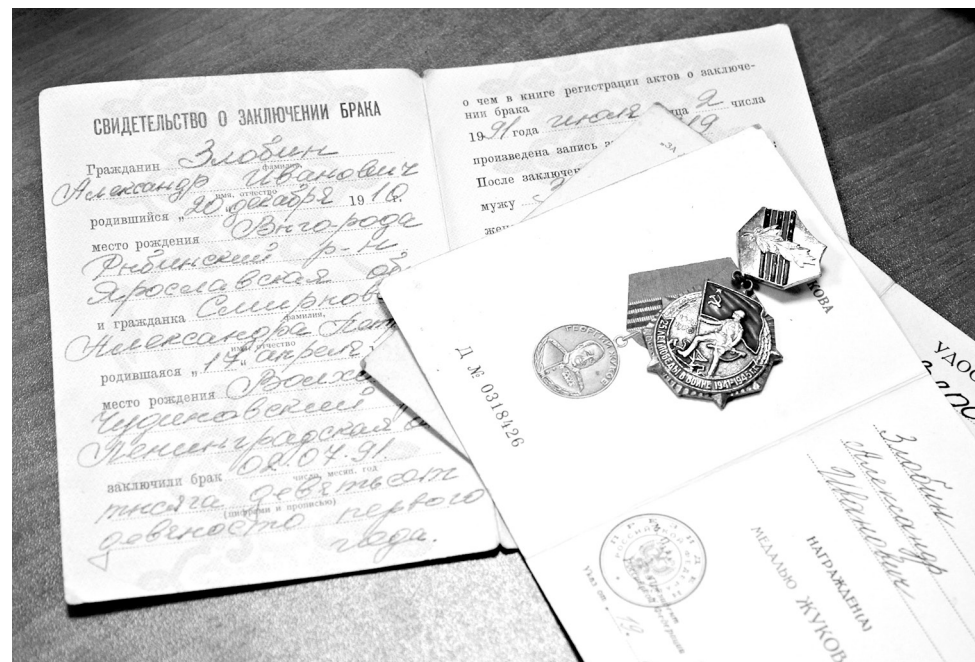 СВИДЕТЕЛЬСТВО О ЗАКЛЮЧЕНИИ БРАКА
Гражданин Злобин
фамилия
Александр Иванович
имя, отчество
родившийся „20" декабря 1910г.
место рождения
Рыбинский р-н
Ярославская об
и гражданка Смирнов
фамилия,
Александра
имя, отчество
родившаяся „17" апреля
место рождения Волхо
Чудиновский
Ленинградская
заключили брак 02.07.91.
число, месяц, год
тысяча девятьсот
(цифрами и прописью)
девяносто первого
года.
о чем в книге регистрации актов о заключе-
нии брака
1991 года июля 2 числа
произведена запись за 19
После заключен
мужу
жен
„ЗА
КОВА
ГЕОРГИЙ ЖУКОВ
25 ЛЕТ ПОБЕДЫ В ВОЙНЕ 1941-1945гг.
Д № 0318426
УДОС
Злобин
Александр
Иванович
НАГРАЖДЕН(А)
МЕДАЛЬЮ ЖУКОВА
Указ от